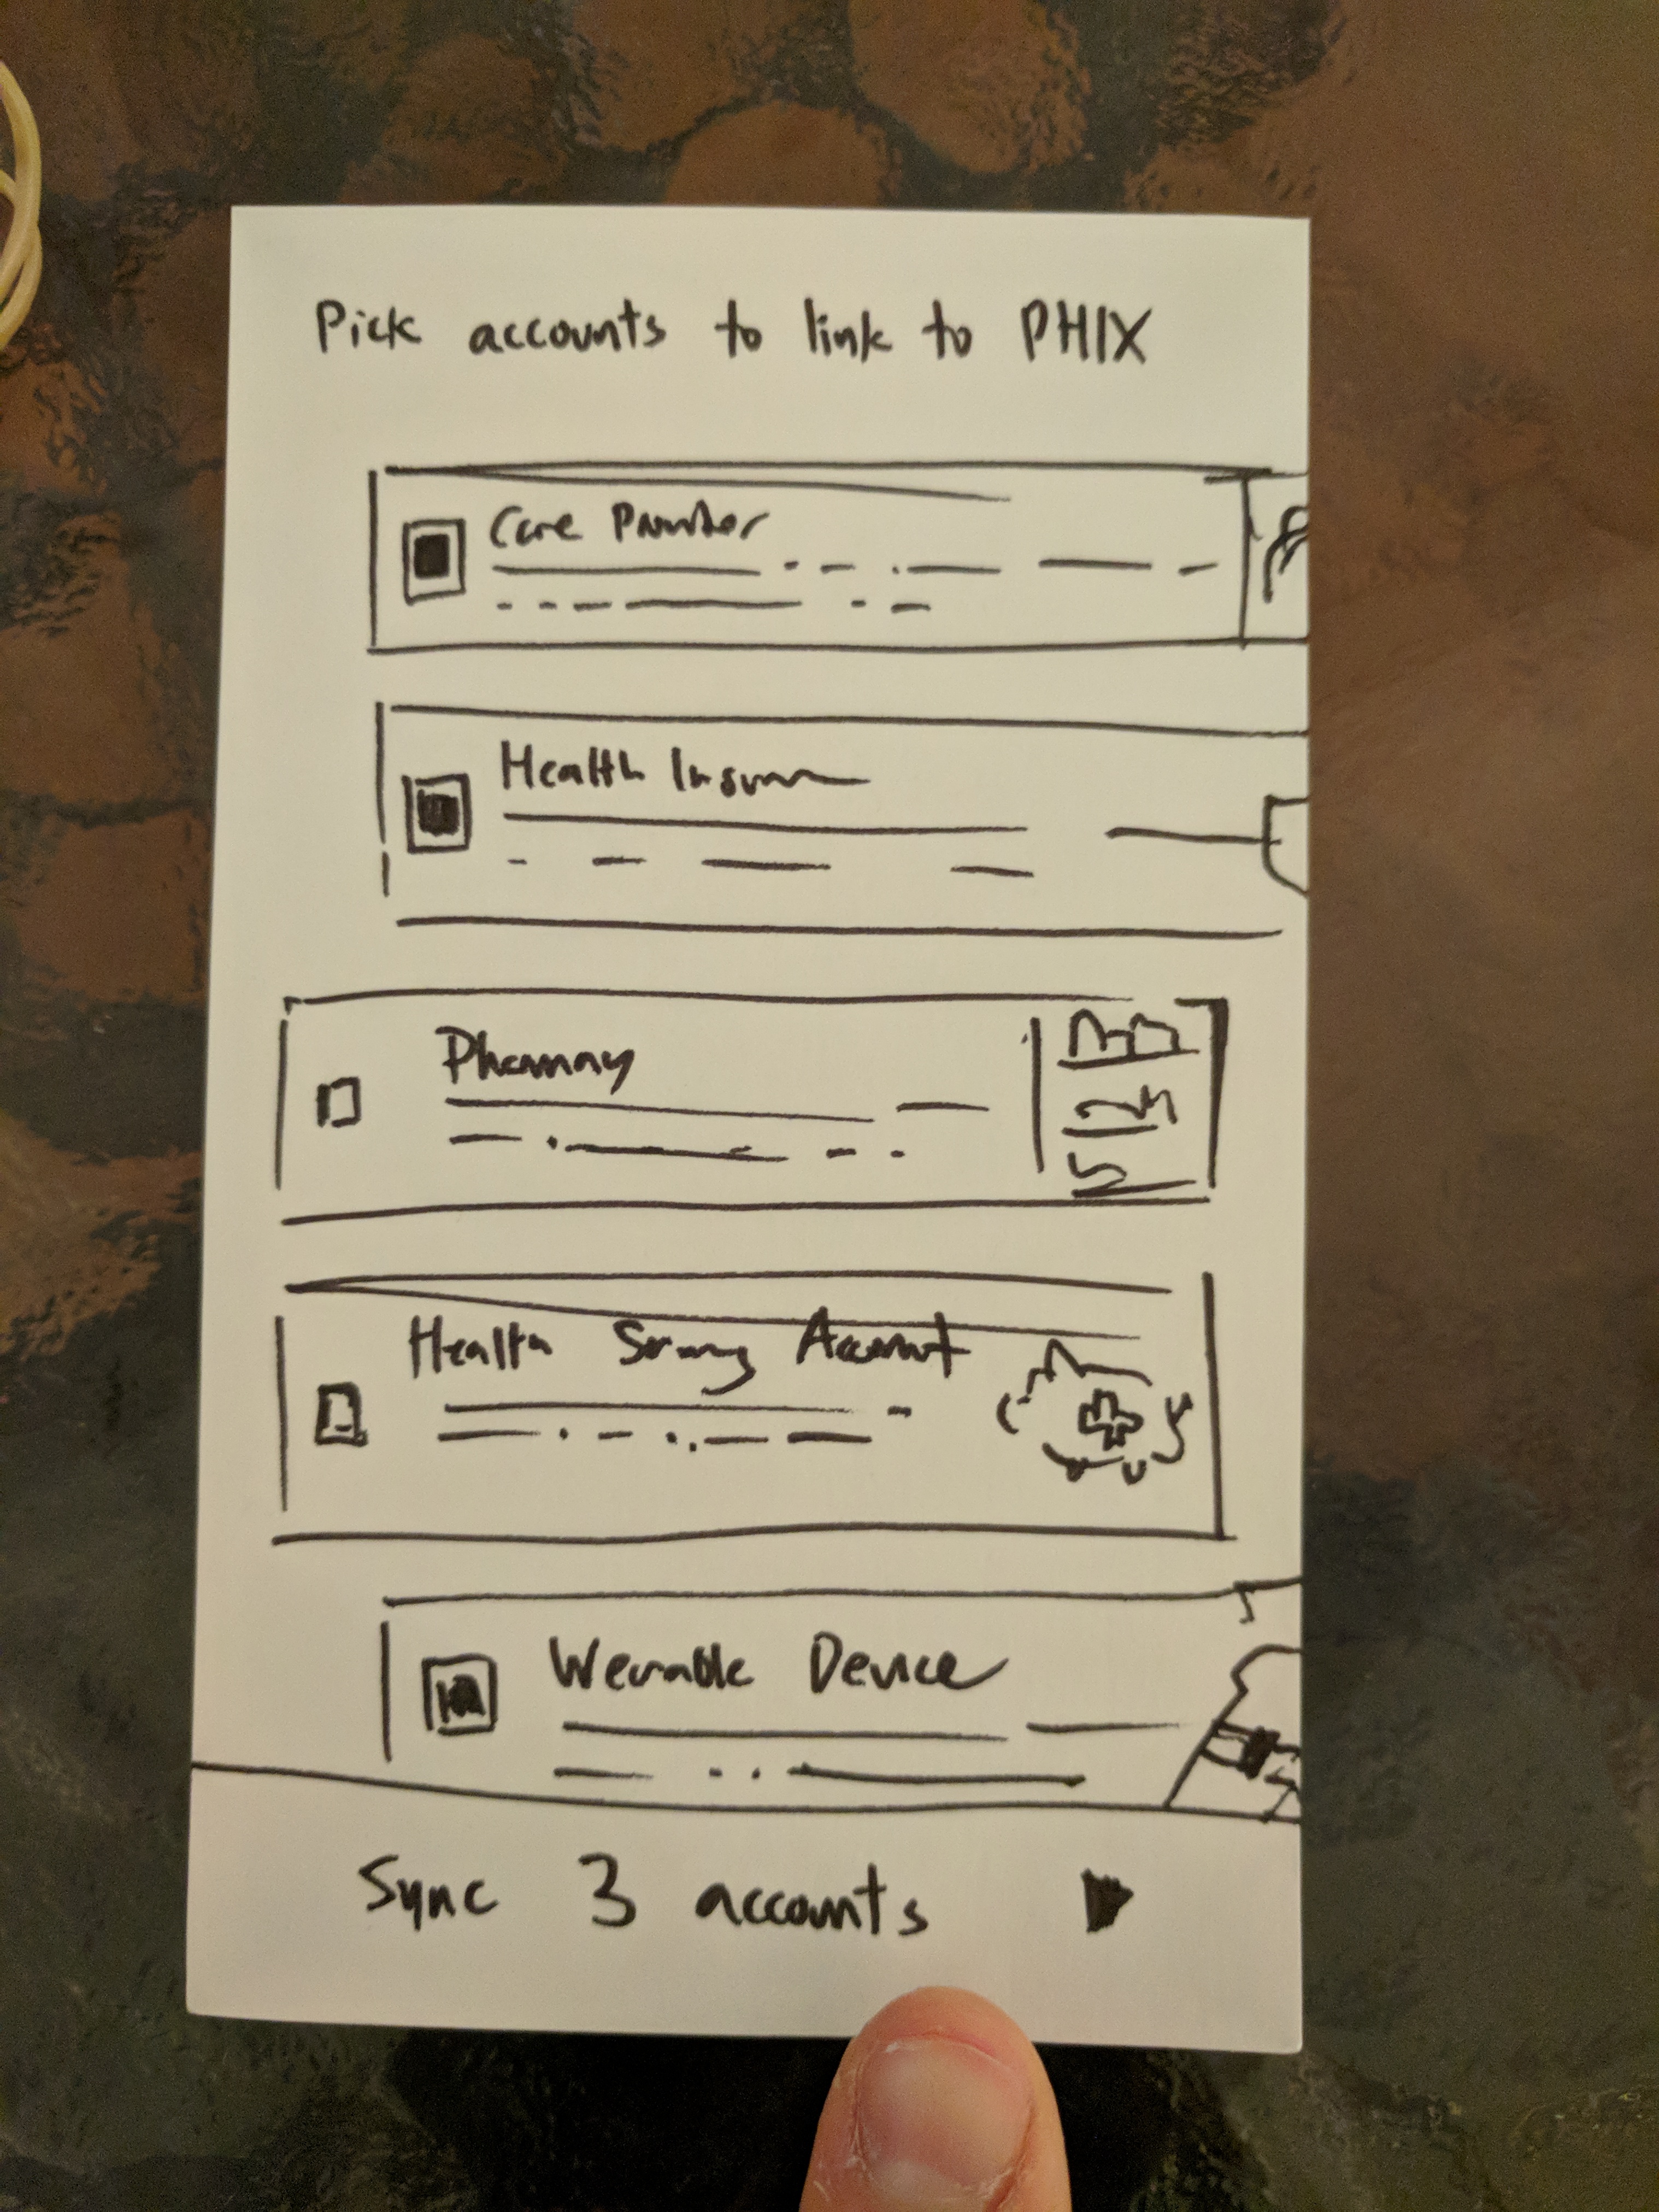 Pick accounts to link to PHIX
Care Provider
Health Insurance
Pharmacy
Health Savings Account
Wearable Device
Sync 3 accounts